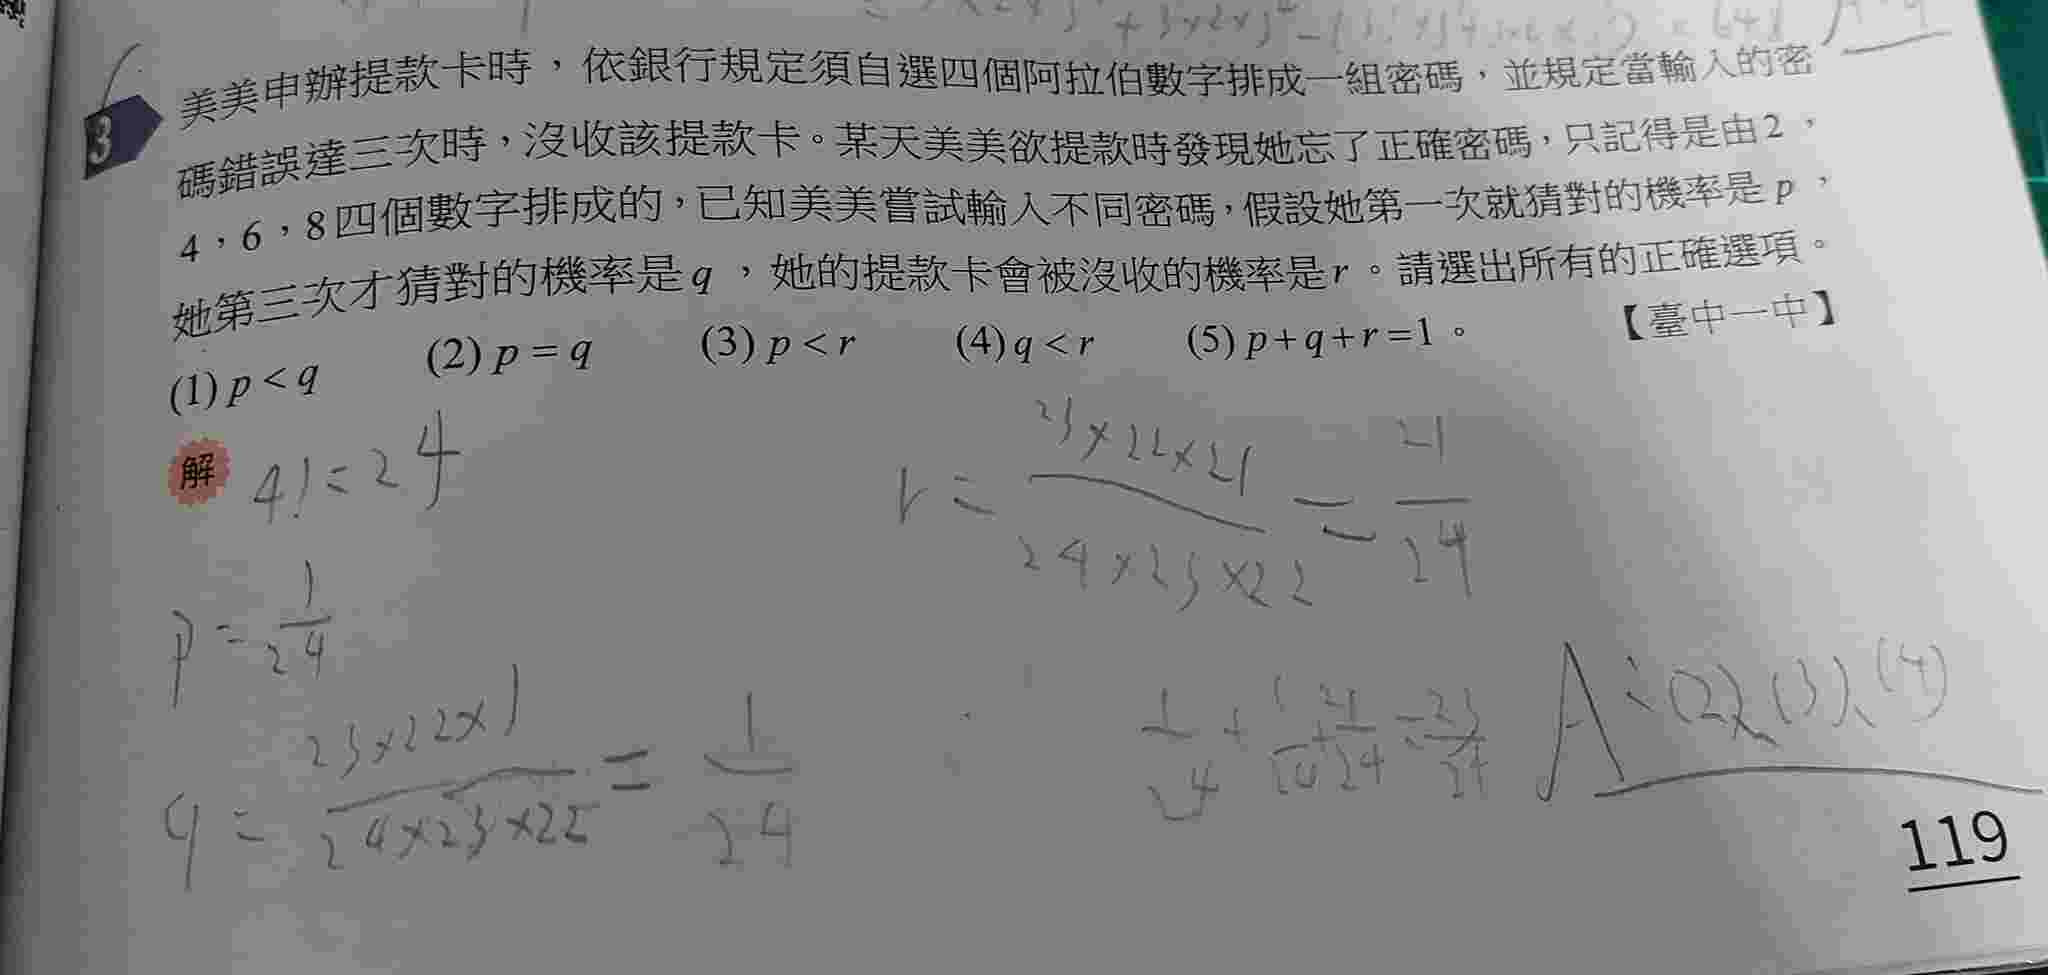 3 美美申辦提款卡時，依銀行規定須自選四個阿拉伯數字排成一組密碼，並規定當輸入的密
碼錯誤達三次時，沒收該提款卡。某天美美欲提款時發現她忘了正確密碼，只記得是由2，
4，6，8四個數字排成的，已知美美嘗試輸入不同密碼，假設她第一次就猜對的機率是p，
她第三次才猜對的機率是q，她的提款卡會被沒收的機率是r。請選出所有的正確選項。
【臺中一中】
(1) p<q (2) p=q (3) p<r (4) q<r (5) p+q+r=1。
解 4!=24
r = 23×22×21 / 24×23×22 = 21/24
p = 1/24
q = 23×22×1 / 24×23×22 = 1/24
1/24 + 1/24 + 21/24 = 23/24
A:(2)、(3)、(4)
119